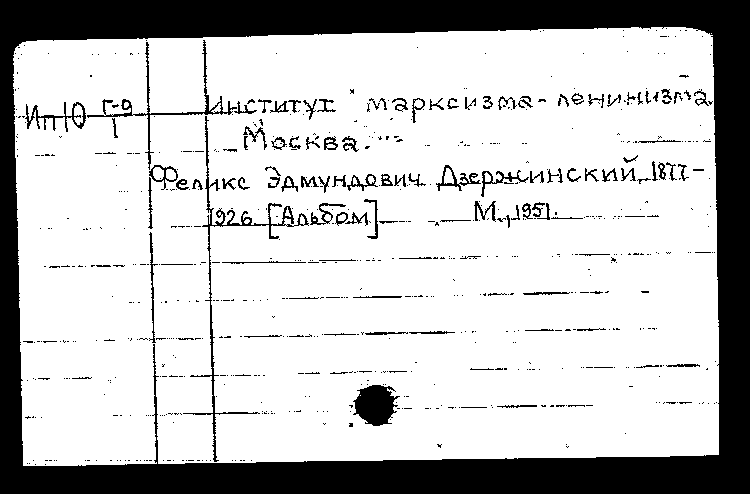 Ип10 Г-9/1 Институт марксизма-ленинизма.
Москва.
Феликс Эдмундович Дзержинский, 1877-
1926. [Альбом] М., 1951.